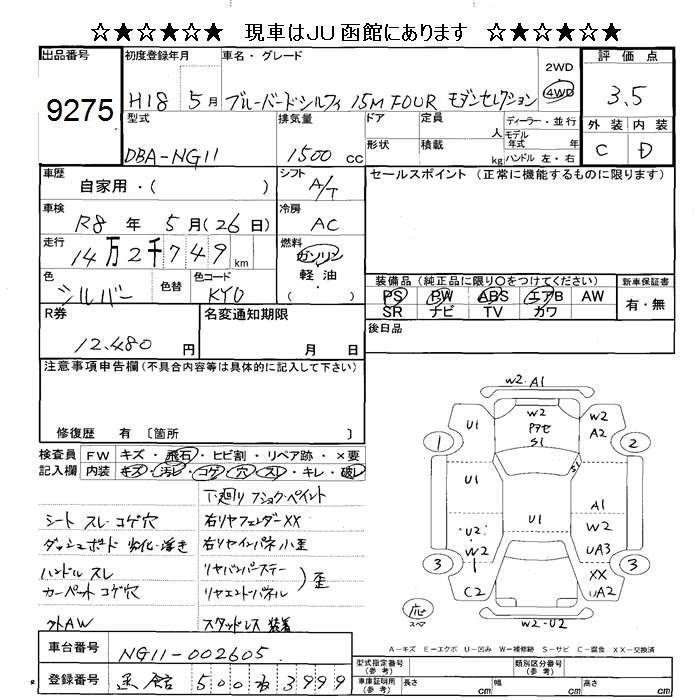 ☆★☆★☆ 現車はJU函館にあります ☆★☆★☆
出品番号 初度登録年月 車名・グレード 2WD 評価点
9275 H18 5月 ブルーバードシルフィ 15M FOUR モダンセレクション 4WD 3.5
型式 排気量 ドア 定員 人 ディーラー・並行 外装 内装
DBA-NG11 1500cc 形状 積載 kg モデル年式 年 ハンドル 左・右 C D
車歴 シフト セールスポイント (正常に機能するものに限ります)
自家用・( ) A/T
車検 冷房
R8 年 5月(26日) AC
走行 燃料
14万2千749km ガソリン
軽油
( )
色 色替 色コード
シルバー KY0
装備品(純正品に限り○をつけてください) 新車保証書
PS PW ABS エアB AW 有・無
SR ナビ TV カワ
R券 名変通知期限 後日品
12,480円 月 日
注意事項申告欄(不具合内容等は具体的に記入して下さい)
修復歴 有 〔箇所 〕
検査員 FW キズ・飛石・ヒビ割・リペア跡・×要
記入欄 内装 キズ・汚レ・コゲ・穴・スレ・キレ・破レ
下廻りフショク・ペイント
シート スレ・コゲ穴 右リヤフェンダーXX
ダッシュボード 劣化・浮き 右リヤインパネ小歪
ハンドル スレ リヤバンパーステー
カーペット コゲ穴 リヤエンドパネル )歪
外AW スタッドレス 装着
W2・A1
U1 W2 アアセ S1 W2 A2
1 2
S1
U1 A1
U1
U2 W2 W2
UA3
3 1 XX 3
C2 UA2
応 スペア W2-U2
A-キズ E-エクボ U-凹み W-補修跡 S-サビ C-腐食 XX-交換済
車台番号 NG11-002605
登録番号 函館 500 ね 3999
型式指定番号(参考) 類別区分番号(参考)
車庫証明用(参考) 長さ cm 幅 cm 高さ cm